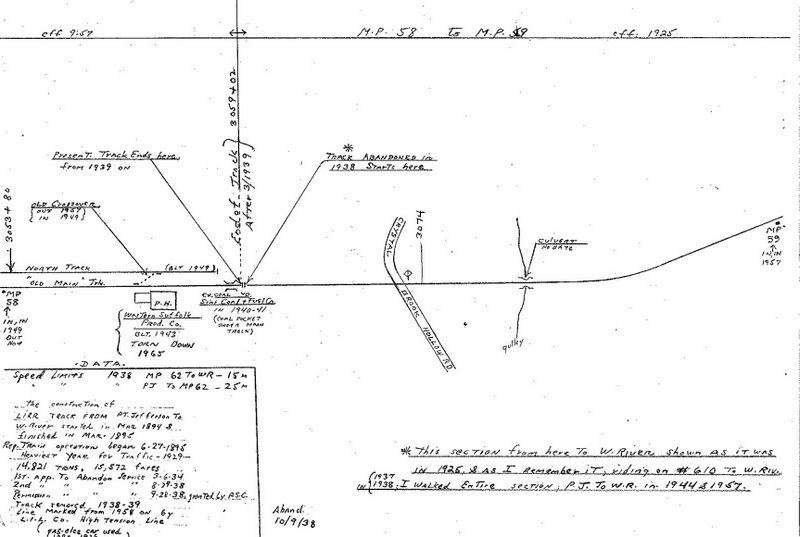 eff 9:57
M.P. 58 to M.P. 59
eff. 1925
3059+02
End of Track
After 3/1939
Present Track Ends here,
from 1939 on
*
Track Abandoned in
1938 Starts here
Old Crossover
OUT 1957
IN 1949
3053+80
North Track
(BLT 1949)
"Old Main" Trk.
MP
58
IN, IN
1949
OUT
Now
P.H.
Western Suffolk
Prod. Co.
BLT. 1943
TORN DOWN
1965
Ex. Coal Yd.
Sini Coal & Fuel Co
IN 1940-41
(COAL POCKET
UNDER MAIN
TRACK)
CRYSTAL
BROOK
HOLLOW RD.
3074
CULVERT
NO DATE
gulley
MP
59
IN, IN
1957
- DATA -
Speed Limits 1938 MP 62 To WR - 15 m
" " " PJ To MP 62 - 25 m
the construction of
LIRR TRACK FROM PT. Jefferson To
W. River started in Mar 1894 &
finished in Mar. 1895
Reg. Train operation began 6-27-1895
Heaviest Year for Traffic - 1929 -
14,821 tons, 15,572 fares
1st. App. To Abandon Service 3-6-34
2nd " " " 8-29-38
Permission " " 9-28-38, granted by P.S.C.
Track removed 1938-39
Line Marked from 1958 on by
L.I.L. Co. High Tension Line
(gas-elec car used
Aband.
10/9/38
* This section from here To W. River shown as it was
in 1925, & as I remember it, riding on #610 To W. Riv.
IN {1937 1938. I walked Entire section, P.J. To W.R. in 1944 & 1957.